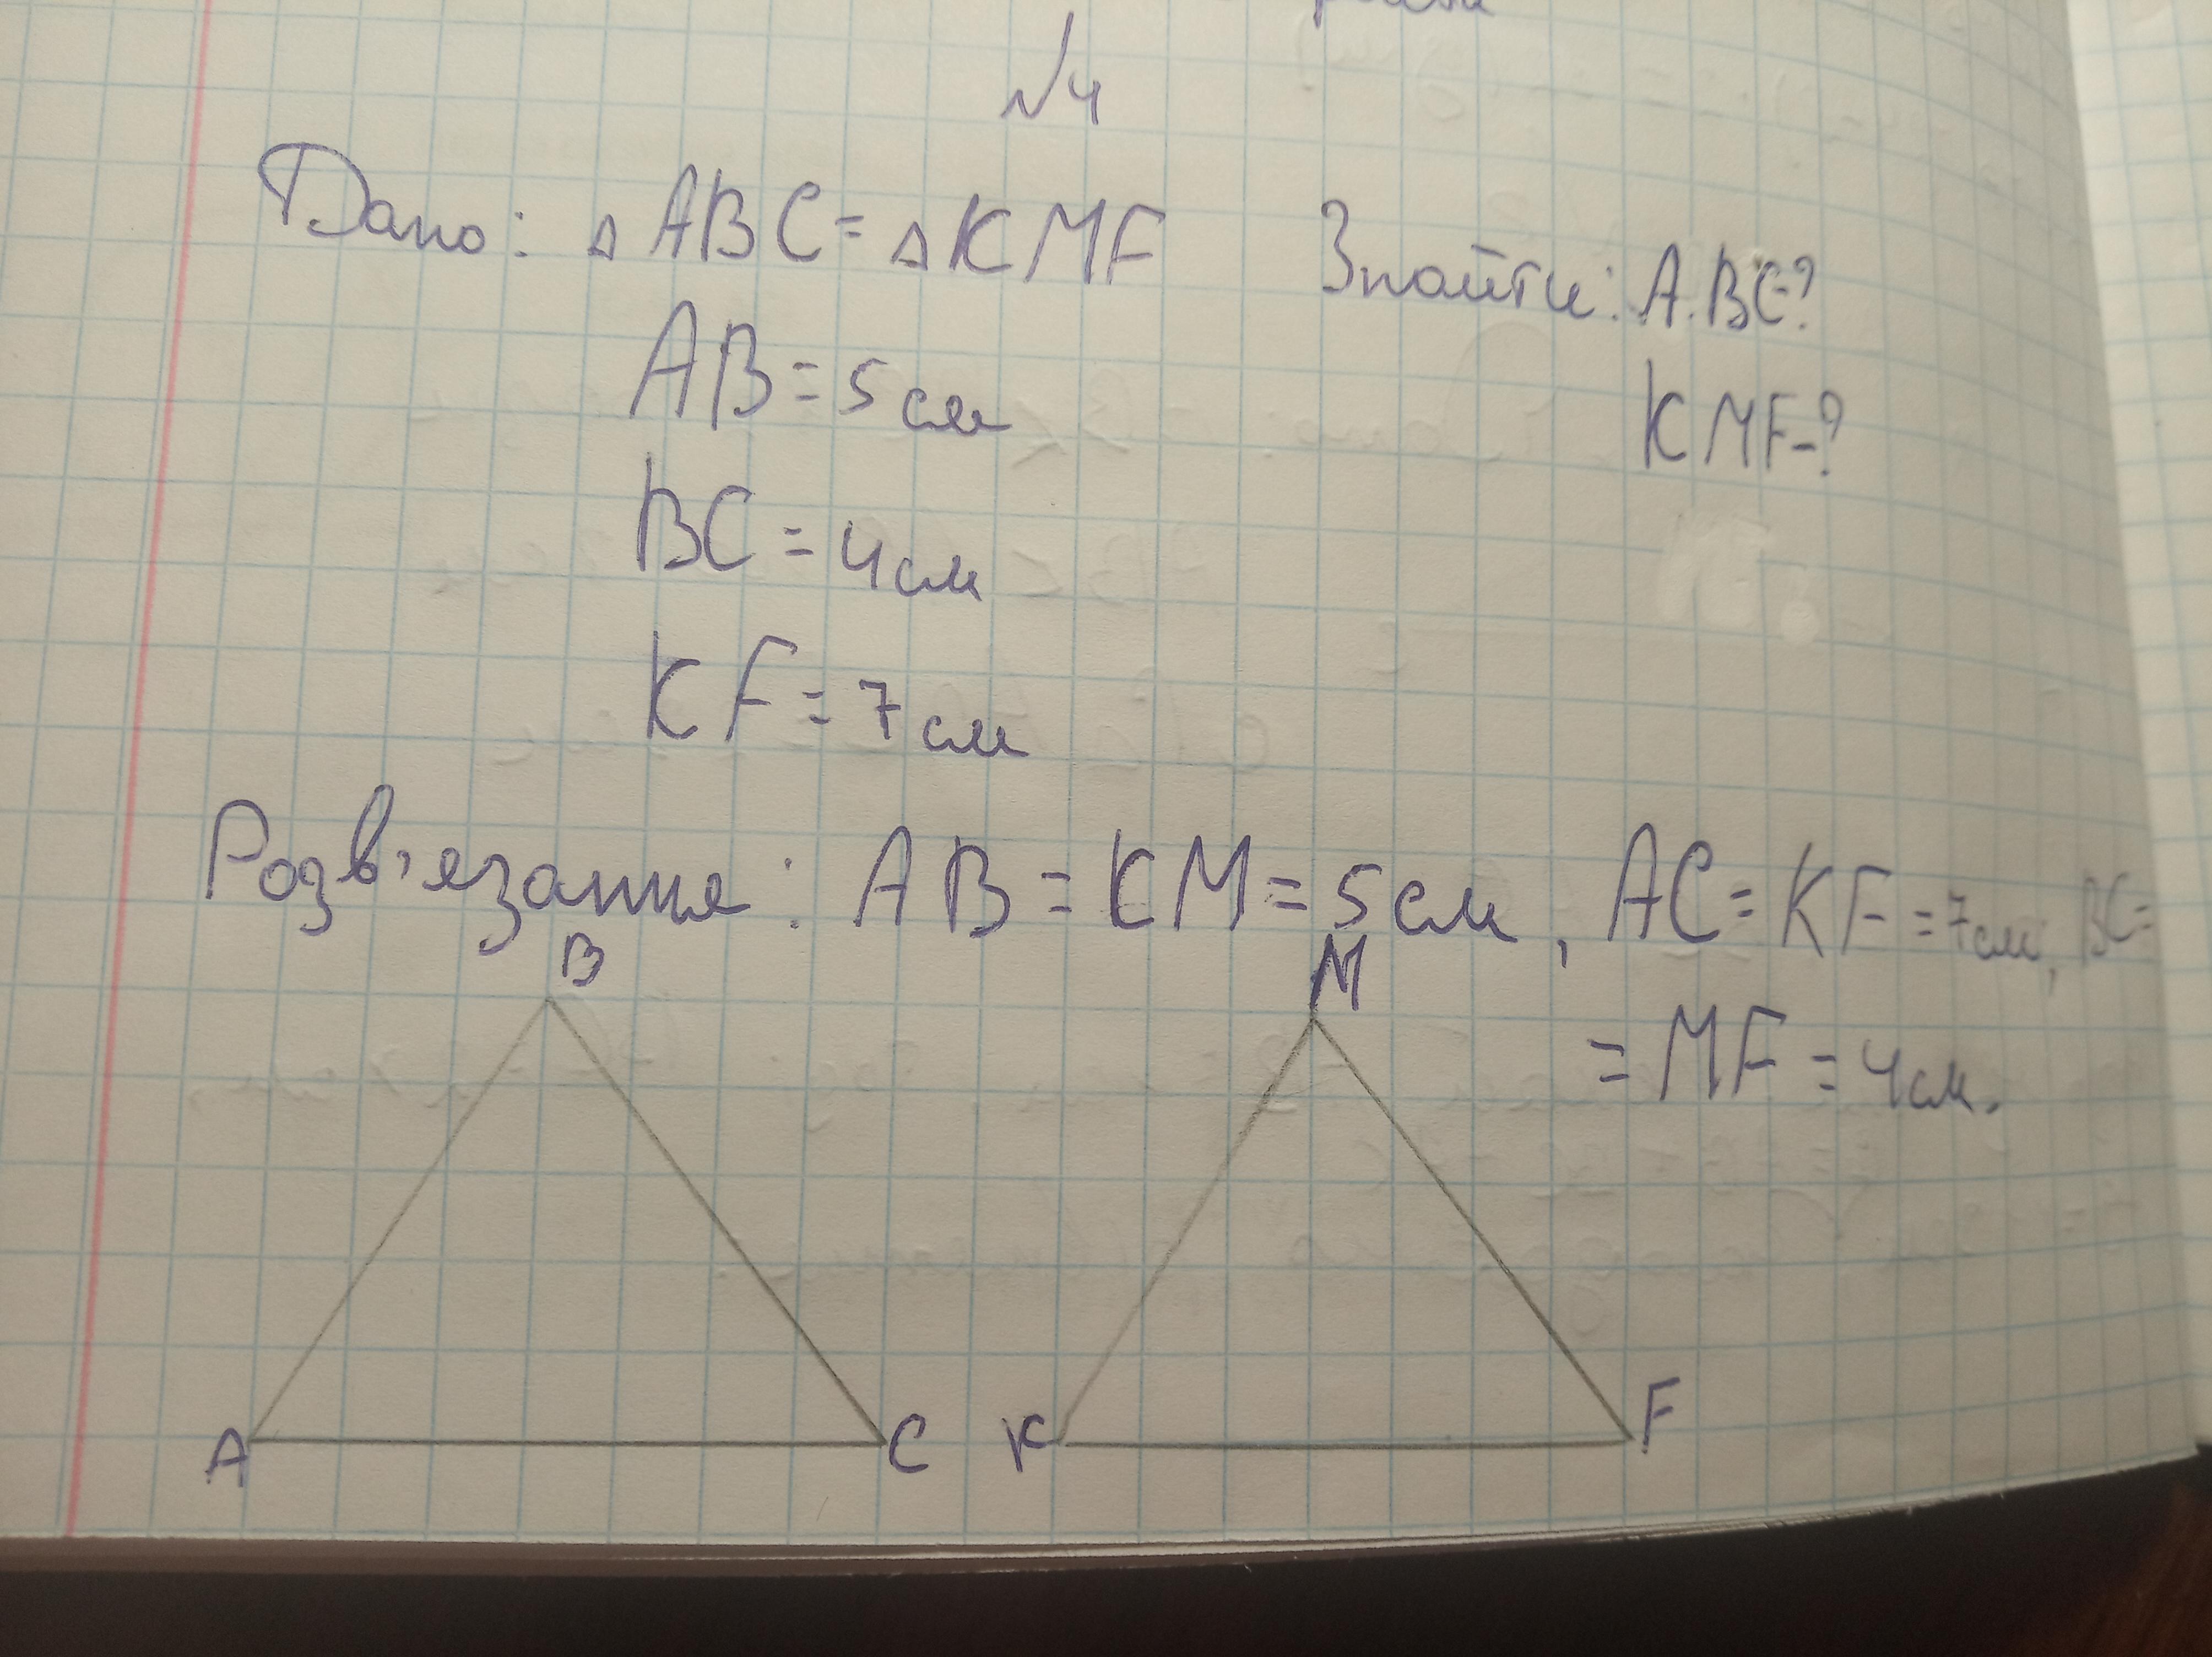 №4
Дано: △ABC = △KMF
Знайти: ABC-?
AB = 5 см
KMF-?
BC = 4 см
KF = 7 см
Розв'язання: AB = KM = 5 см, AC = KF = 7 см, BC =
= MF = 4 см.
B M
A C K F